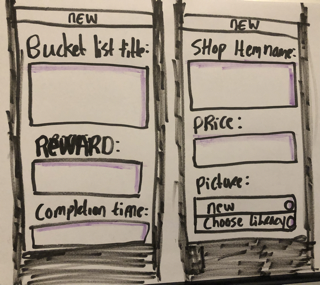 NEW
Bucket list title:
REWARD:
Completion time:
NEW
SHop Item name:
PRice:
Picture:
new
Choose Library